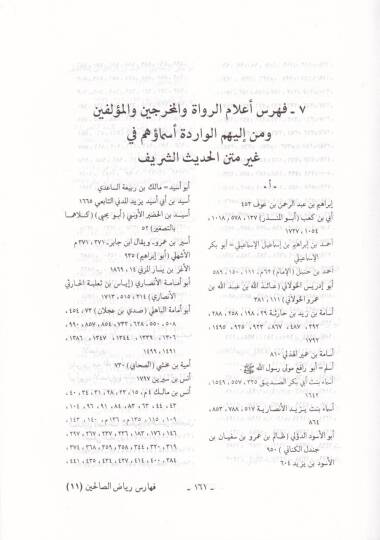 ٧ - فهرس أعلام الرواة والمخرجين والمؤلفين
ومن إليهم الواردة أسماؤهم في
غير متن الحديث الشريف
- أ -
إبراهيم بن عبد الرحمن بن عوف ٤٥٣
أبي بن كعب (أبو المنذر) ١٣٧ ، ٥٧٨ ، ١٠١٨ ،
١٠٥٤ ، ١٧٢٧
أحمد بن إبراهيم بن إسماعيل الإسماعيلي = أبو بكر
الإسماعيلي
أحمد بن حنبل (الإمام) ٦٢م ، ١١١ ، ١٥٠ ، ٥٨٦
أبو إدريس الخولاني (عائذ الله بن عبد الله بن
عمرو الخولاني) ١١١ ، ٣٨١
أسامة بن زيد بن حارثة ٢٩ ، ١٩٨ ، ٢٥٨ ، ٢٨٨ ،
٢٩٢ ، ٤٨٧ ، ٨٦٧ ، ٩٢٣ ، ٩٢٥ ، ١٤٩٥ ،
١٧٩٢
أسامة بن عمير الهذلي ٨١٠
أسلم = أبو رافع مولى رسول الله ﷺ
أسماء بنت أبي بكر الصديق ٣٢٥ ، ٥٥٧ ، ١٥٤٩ ،
أسماء بنت يزيد الأنصارية ٥١٧ ، ٧٨٨ ، ٨٥٣ ،
٨٦٤
أبو الأسود الدؤلي (ظالم بن عمرو بن سفيان بن
جندل الكناني) ٩٥٠
الأسود بن يزيد ٦٠٤
أبو أسيد = مالك بن ربيعة الساعدي
أسيد بن أبي أسيد يزيد المدني التابعي ١٦٦٥
أسيد بن الحضير الأوسي (أبو يحيى) (كلاهما
بالتصغير) ٥٢
أسير بن عمرو ، ويقال ابن جابر ٣٧١ ، ٣٧١م
الأشهلي (أبو إبراهيم) ٩٣٥
الأغر بن يسار المزني ١٤ ، ١٨٦٩
أبو أمامة الأنصاري (إياس بن ثعلبة الحارثي
الأنصاري) ٢١٤ ، ٥١٥ ، ١٧١٣
أبو أمامة الباهلي (صدي بن عجلان) ٧٣ ، ٤٥٤ ،
٥٠٨ ، ٥٥٠ ، ٦٢٨ ، ٧٣٣ ، ٨٥٤ ، ٨٥٧ ، ٩٩٠ ،
١٣٠٦ ، ١٣٣٩ ، ١٣٤٤ ، ١٣٤٧ ، ١٣٨٦ ،
١٤٩١ ، ١٤٩٩
أمية بن مخشي (الصحابي) ٧٣٠
أنس بن سيرين ١٧٩٧
أنس بن مالك ٤م ، ١٥ ، ٢٣ ، ٢٨ ، ٣١ ، ٣٤ ، ٤٠ ،
٤٣ ، ٤٤ ، ٦٣ ، ٨٣ ، ٨٤ ، ٩١ ، ٩٦ ، ١٠٤ ،
١٠٩ ، ١١٥ ، ١٣٥م ، ١٣٦م ، ١٤٠ ، ١٤٣ ،
١٤٦ ، ١٧٦ ، ١٨٣ ، ٢٢٦ ، ٢٣٦ ، ٢٣٧ ، ٢٩٧ ،
٣١٩ ، ٣٢٠ ، ٣٤٤ ، ٣٥٨ ، ٣٥٩ ، ٣٦٨ ، ٣٧٤ ،
٣٨٤ ، ٤٠٠ ، ٤١٤ ، ٤٢٧ ، ٤٣٤ ، ٤٣٥ ، ٤٤١ ،
- ١٦١ -
فهارس رياض الصالحين (١١)